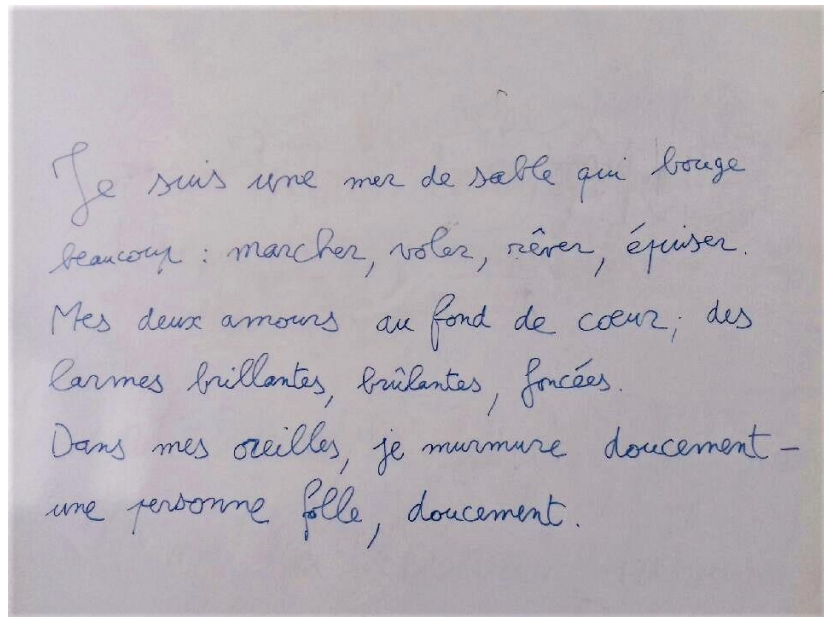 Je suis une mer de sable qui bouge
beaucoup : marcher, voler, rêver, épuiser.
Mes deux amours au fond de cœur; des
larmes brillantes, brûlantes, foncées.
Dans mes oreilles, je murmure doucement -
une personne folle, doucement.